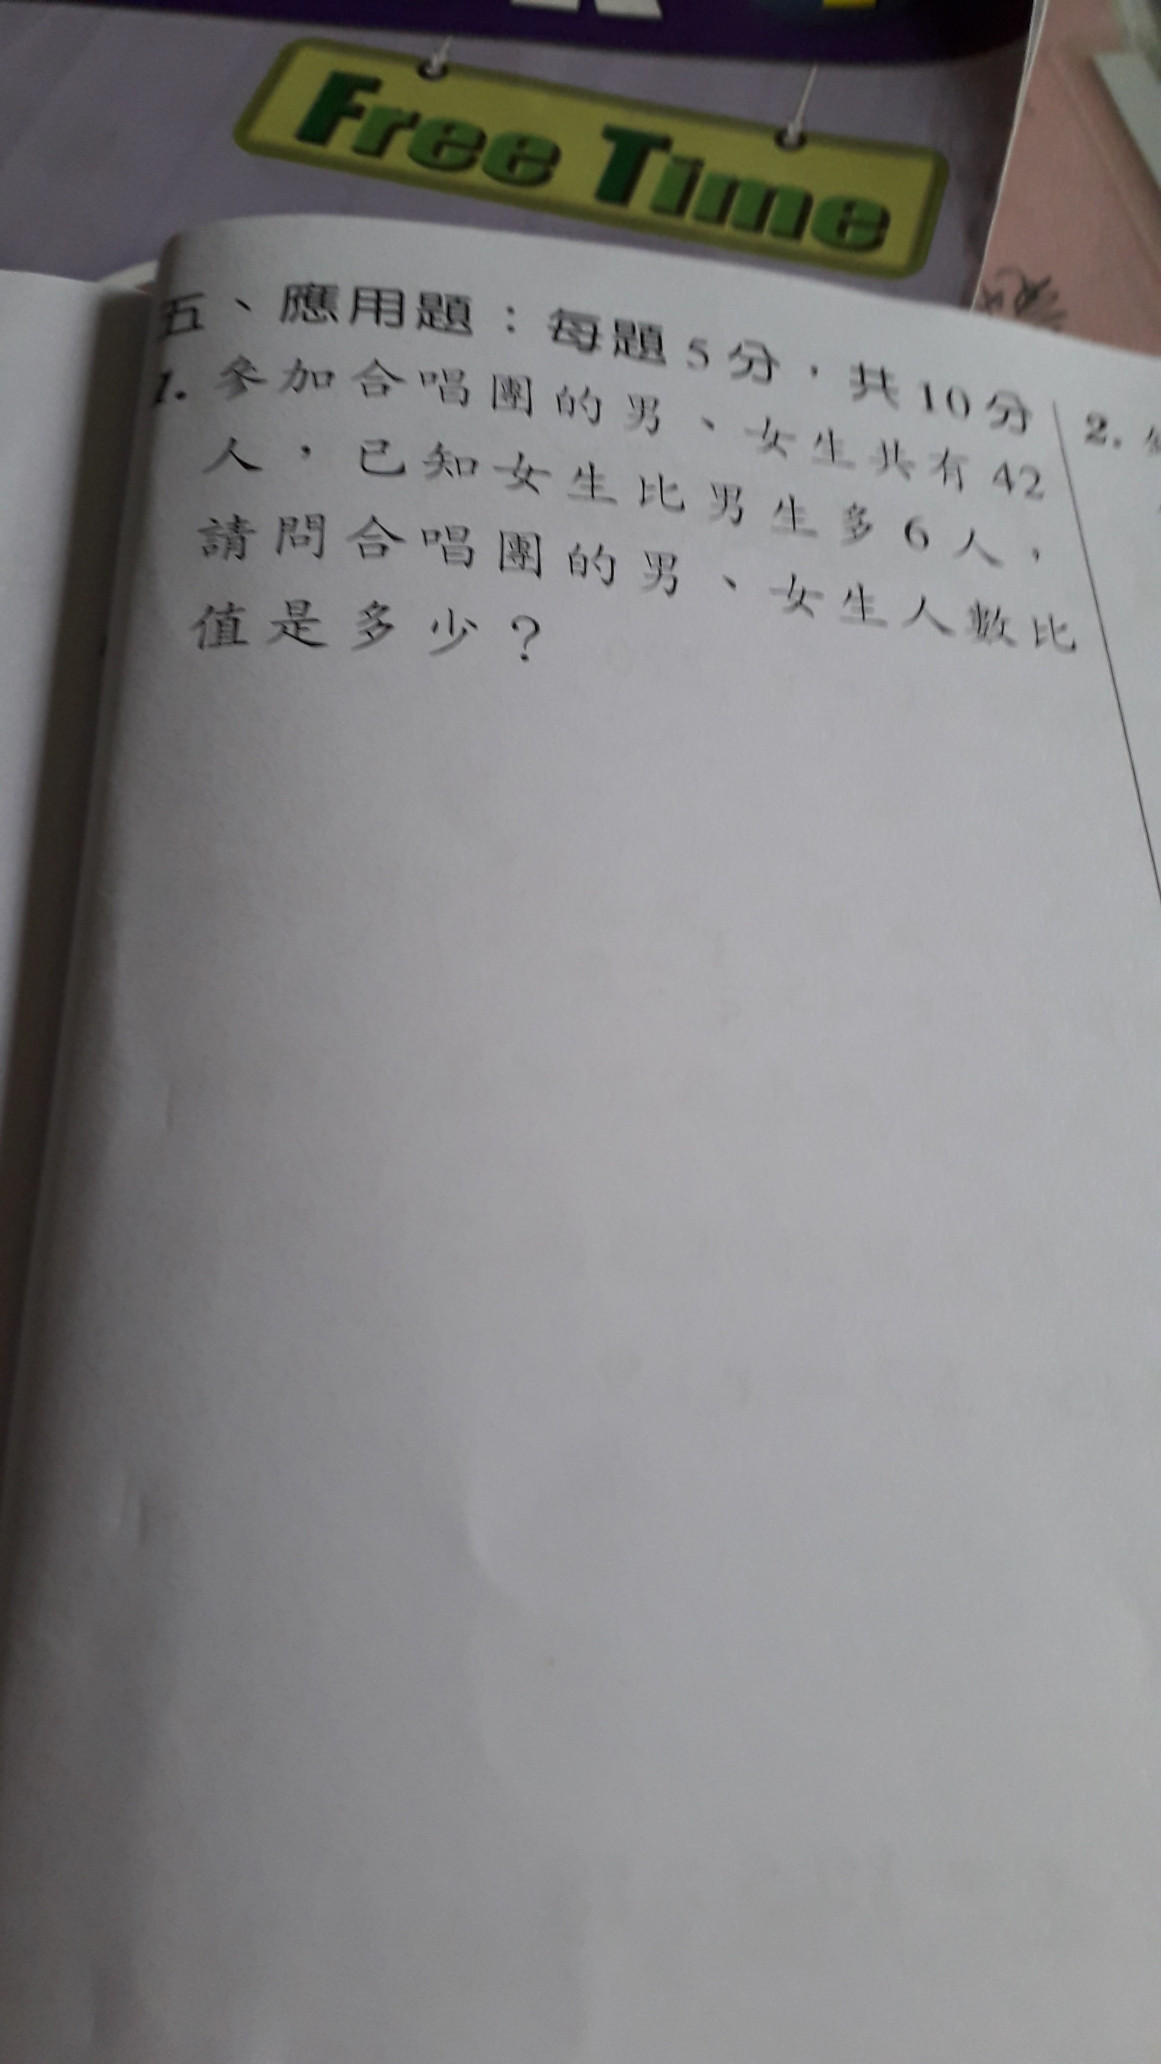 Free Time
五、應用題：每題5分，共10分
1. 參加合唱團的男、女生共有42
人，已知女生比男生多6人，
請問合唱團的男、女生人數比
值是多少？
2.